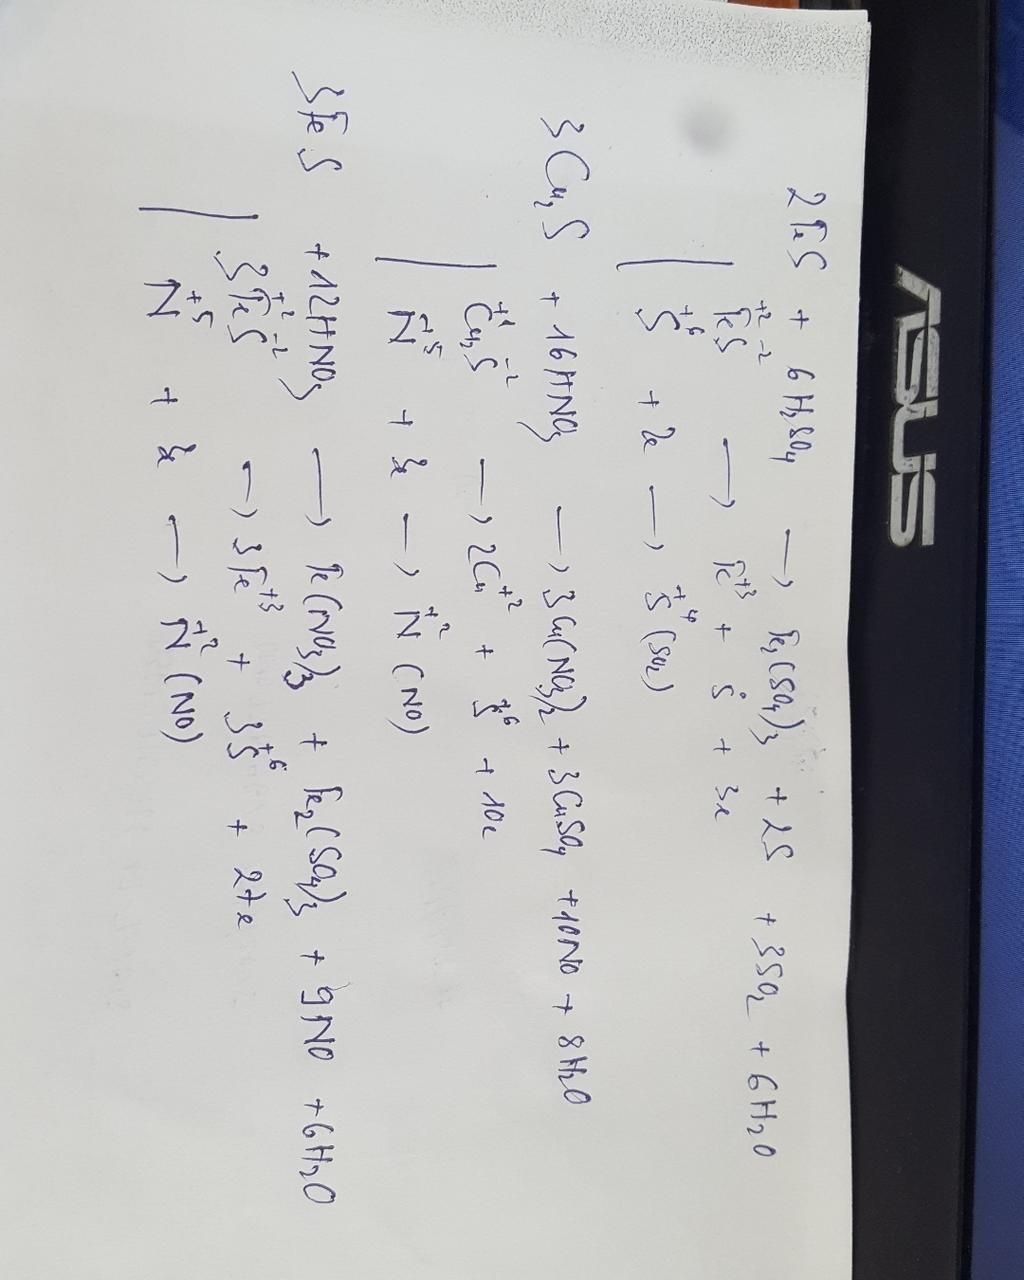 ASUS
2FeS + 6H₂SO₄ → Fe₂(SO₄)₃ + 2S + 3SO₂ + 6H₂O
Fe⁺²S⁻² → Fe⁺³ + S⁰ + 3e
S⁺⁶ + 2e → S⁺⁴ (SO₂)
3Cu₂S + 16HNO₃ → 3Cu(NO₃)₂ + 3CuSO₄ + 10NO + 8H₂O
Cu₂⁺¹S⁻² → 2Cu⁺² + S⁺⁶ + 10e
N⁺⁵ + 3e → N⁺² (NO)
3FeS + 12HNO₃ → Fe(NO₃)₃ + Fe₂(SO₄)₃ + 9NO + 6H₂O
3Fe⁺²S⁻² → 3Fe⁺³ + 3S⁺⁶ + 27e
N⁺⁵ + 3e → N⁺² (NO)